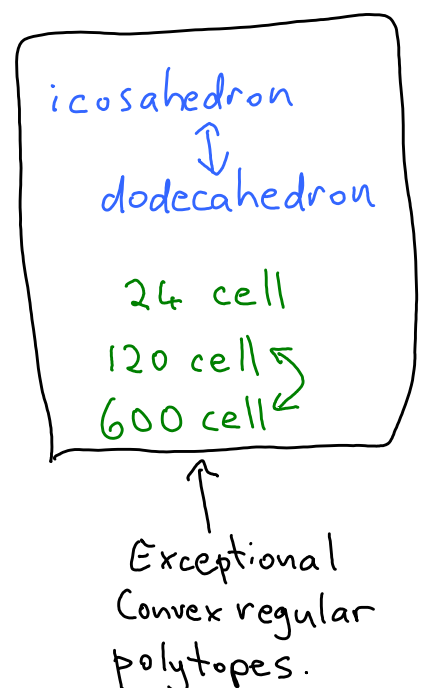 icosahedron
dodecahedron
24 cell
120 cell
600 cell
Exceptional
Convex regular
polytopes.